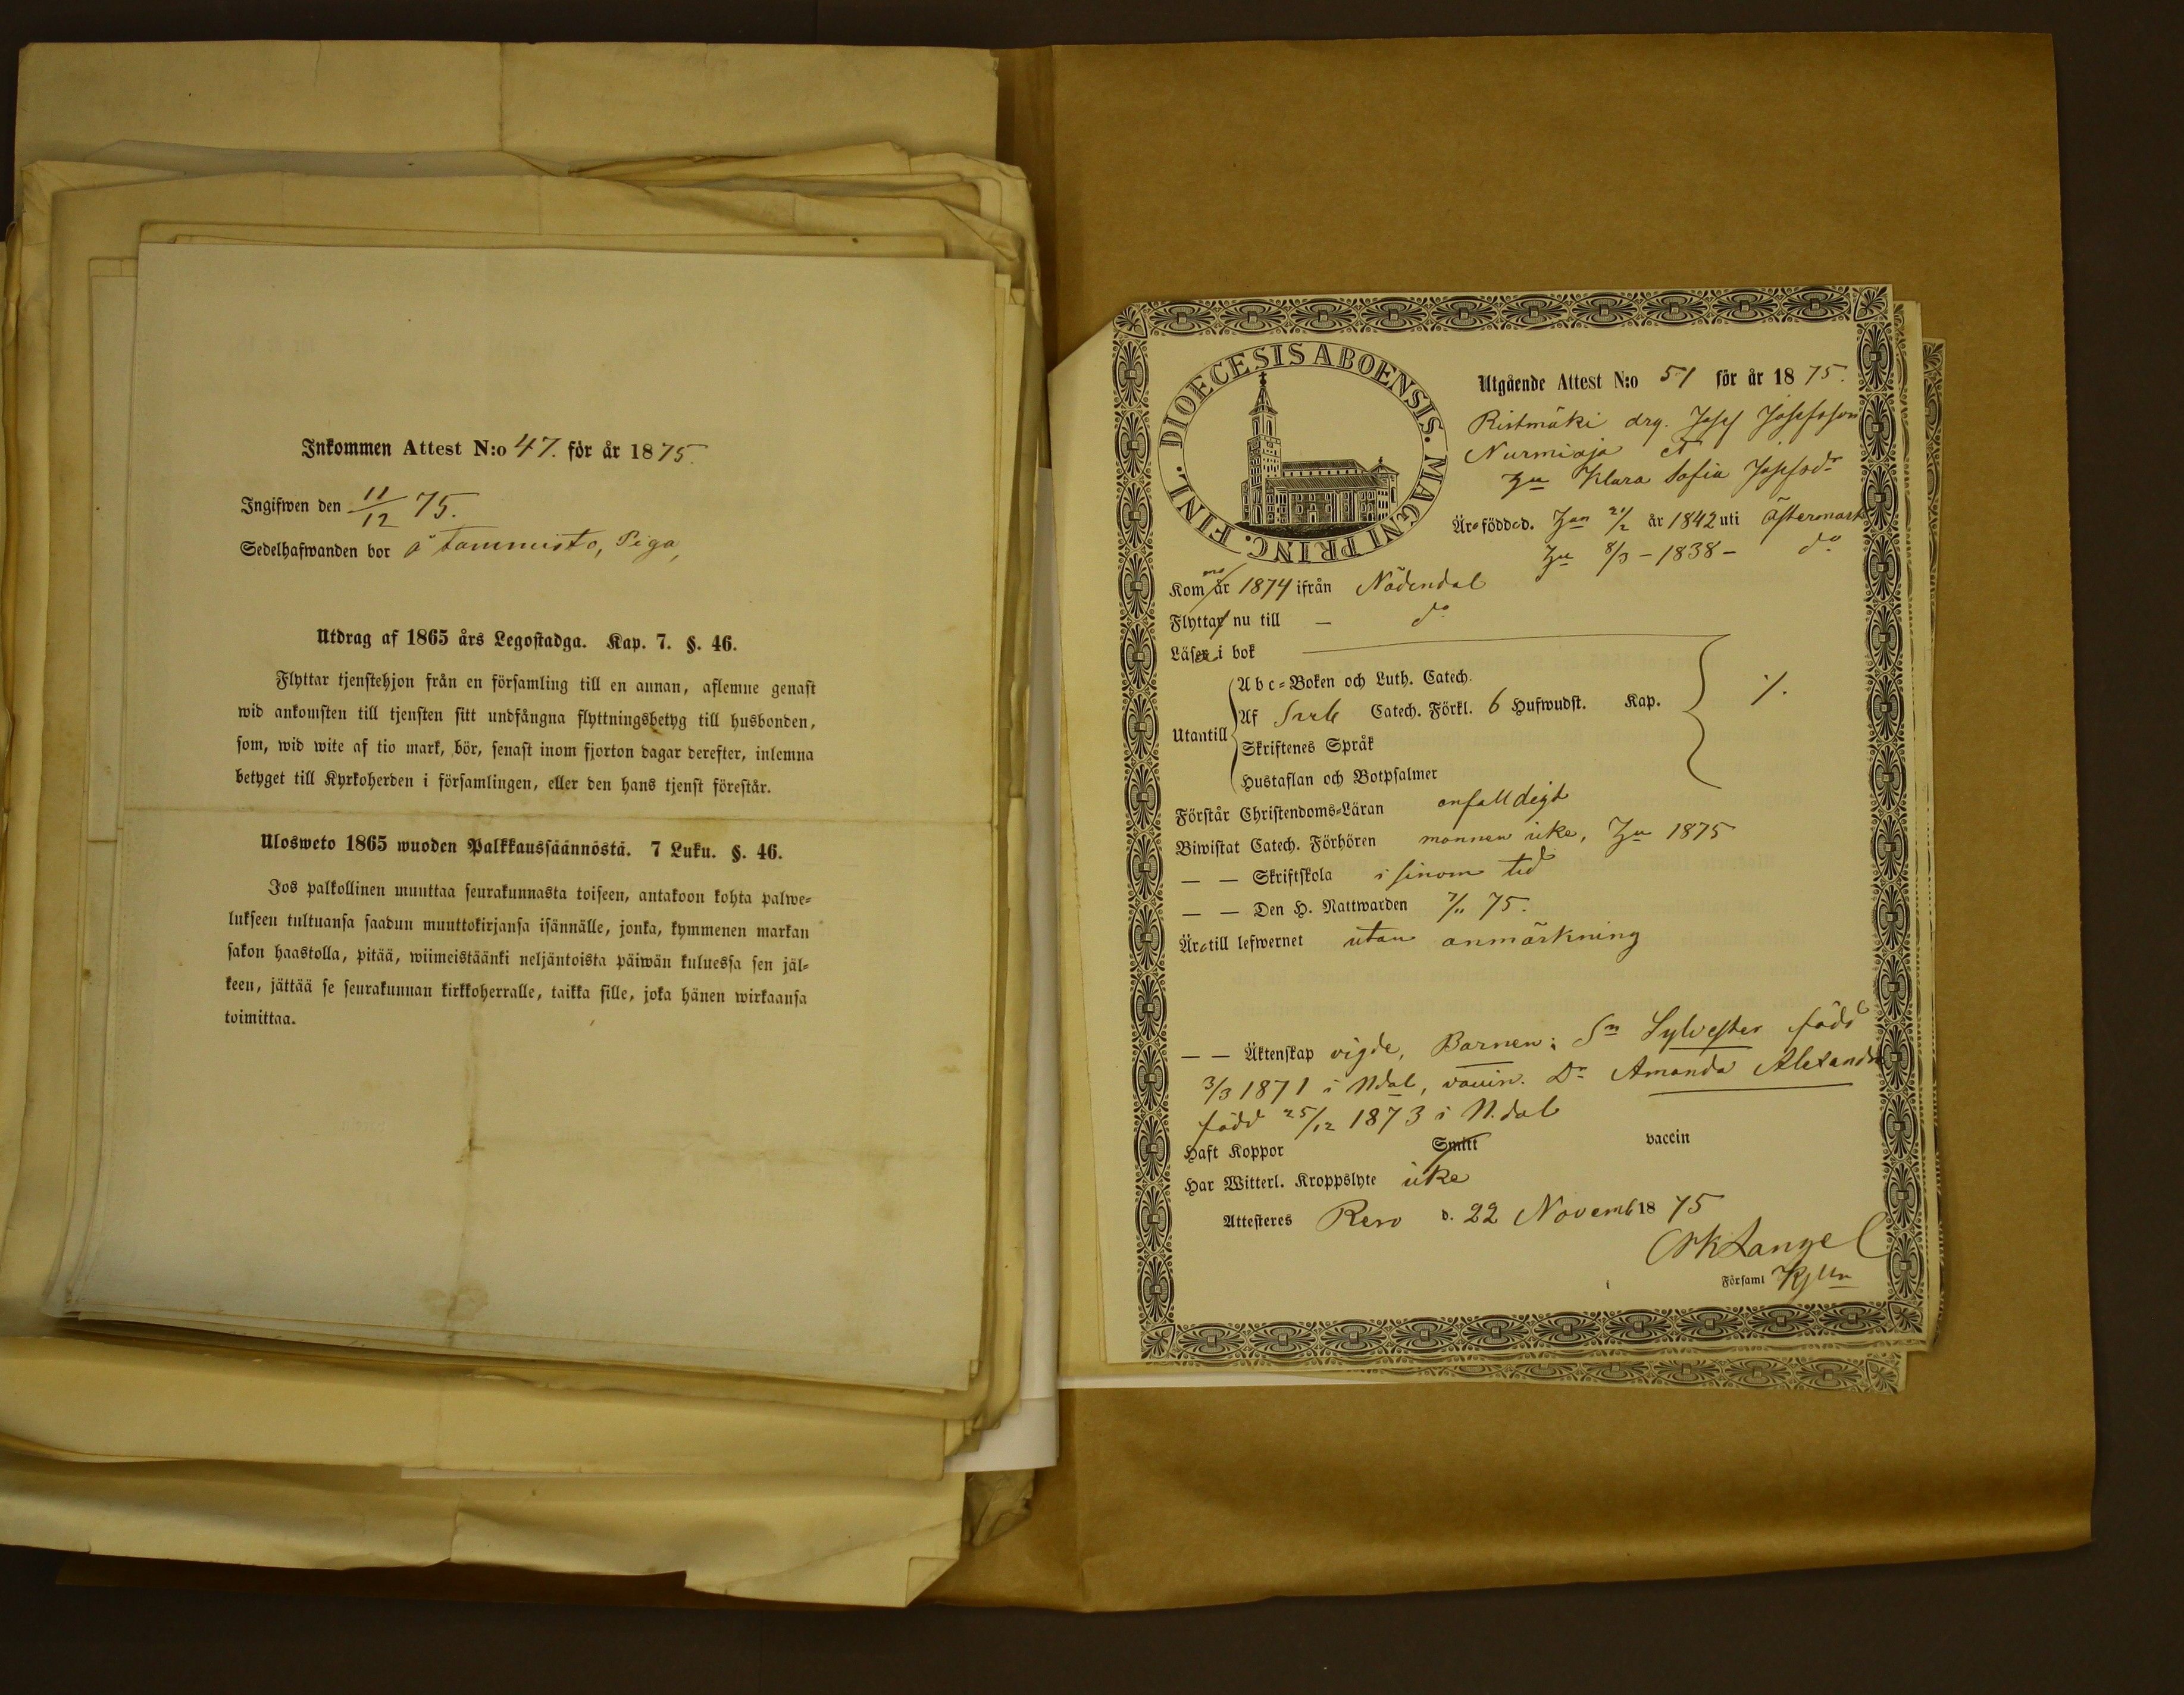 Inkommen Attest N:o 47. för år 1875.
Ingifwen den 11/12 75.
Sedelhafwanden bor å Tammisto, Piga,
Utdrag af 1865 års Legostadga. Kap. 7. §. 46.
Flyttar tjenstehjon från en församling till en annan, aflemne genast
wid ankomsten till tjensten sitt undfångna flyttningsbetyg till husbonden,
som, wid wite af tio mark, bör, senast inom fjorton dagar derefter, inlemna
betyget till Kyrkoherden i församlingen, eller den hans tjenst förestår.
Ulosweto 1865 wuoden Palkkaussäännöstä. 7 Luku. §. 46.
Jos palkollinen muuttaa seurakunnasta toiseen, antakoon kohta palwe=
lukseen tultuansa saadun muuttokirjansa isännälle, jonka, kymmenen markan
sakon haastolla, pitää, wiimeistäänki neljäntoista päiwän kuluessa sen jäl=
keen, jättää se seurakunnan kirkkoherralle, taikka sille, joka hänen wirkaansa
toimittaa.
DIOECESIS ABOENSIS. MAGNI PRINC. FINL.
Utgående Attest N:o 51 för år 1875.
Ristmäki drg. Josef Josefsson
Nurmioja et
Klara Sofia Josefsdr
Äro födde d. 21/2 år 1842 uti Östermark
8/3 - 1838 - do
Kommo år 1874 ifrån Nådendal
Flytta nu till — do
Läsa i bok
Utantill
Abc=Boken och Luth. Catech.
Af Catech. Förkl. 6 Hufwudst. Kap. ./.
Skriftenes Språk
Hustaflan och Botpsalmer
Förstår Christendoms=Läran enfalldigt
Biwistat Catech. Förhören mannen icke, 1875
— — Skriftskola i sinom tid
— — Den H. Nattwarden 7/11 75.
Äro till lefwernet utan anmärkning
— — Äktenskap vigde, Barnen: Sn Sylvester född
3/3 1871 i Ndal, vaccin. Dr Amanda Alexandra
född 25/12 1873 i N.dal
Haft Koppor Smitt vaccin
Har Witterl. Kroppslyte icke
Attesteres Reso d. 22 Novemb 1875
Församl